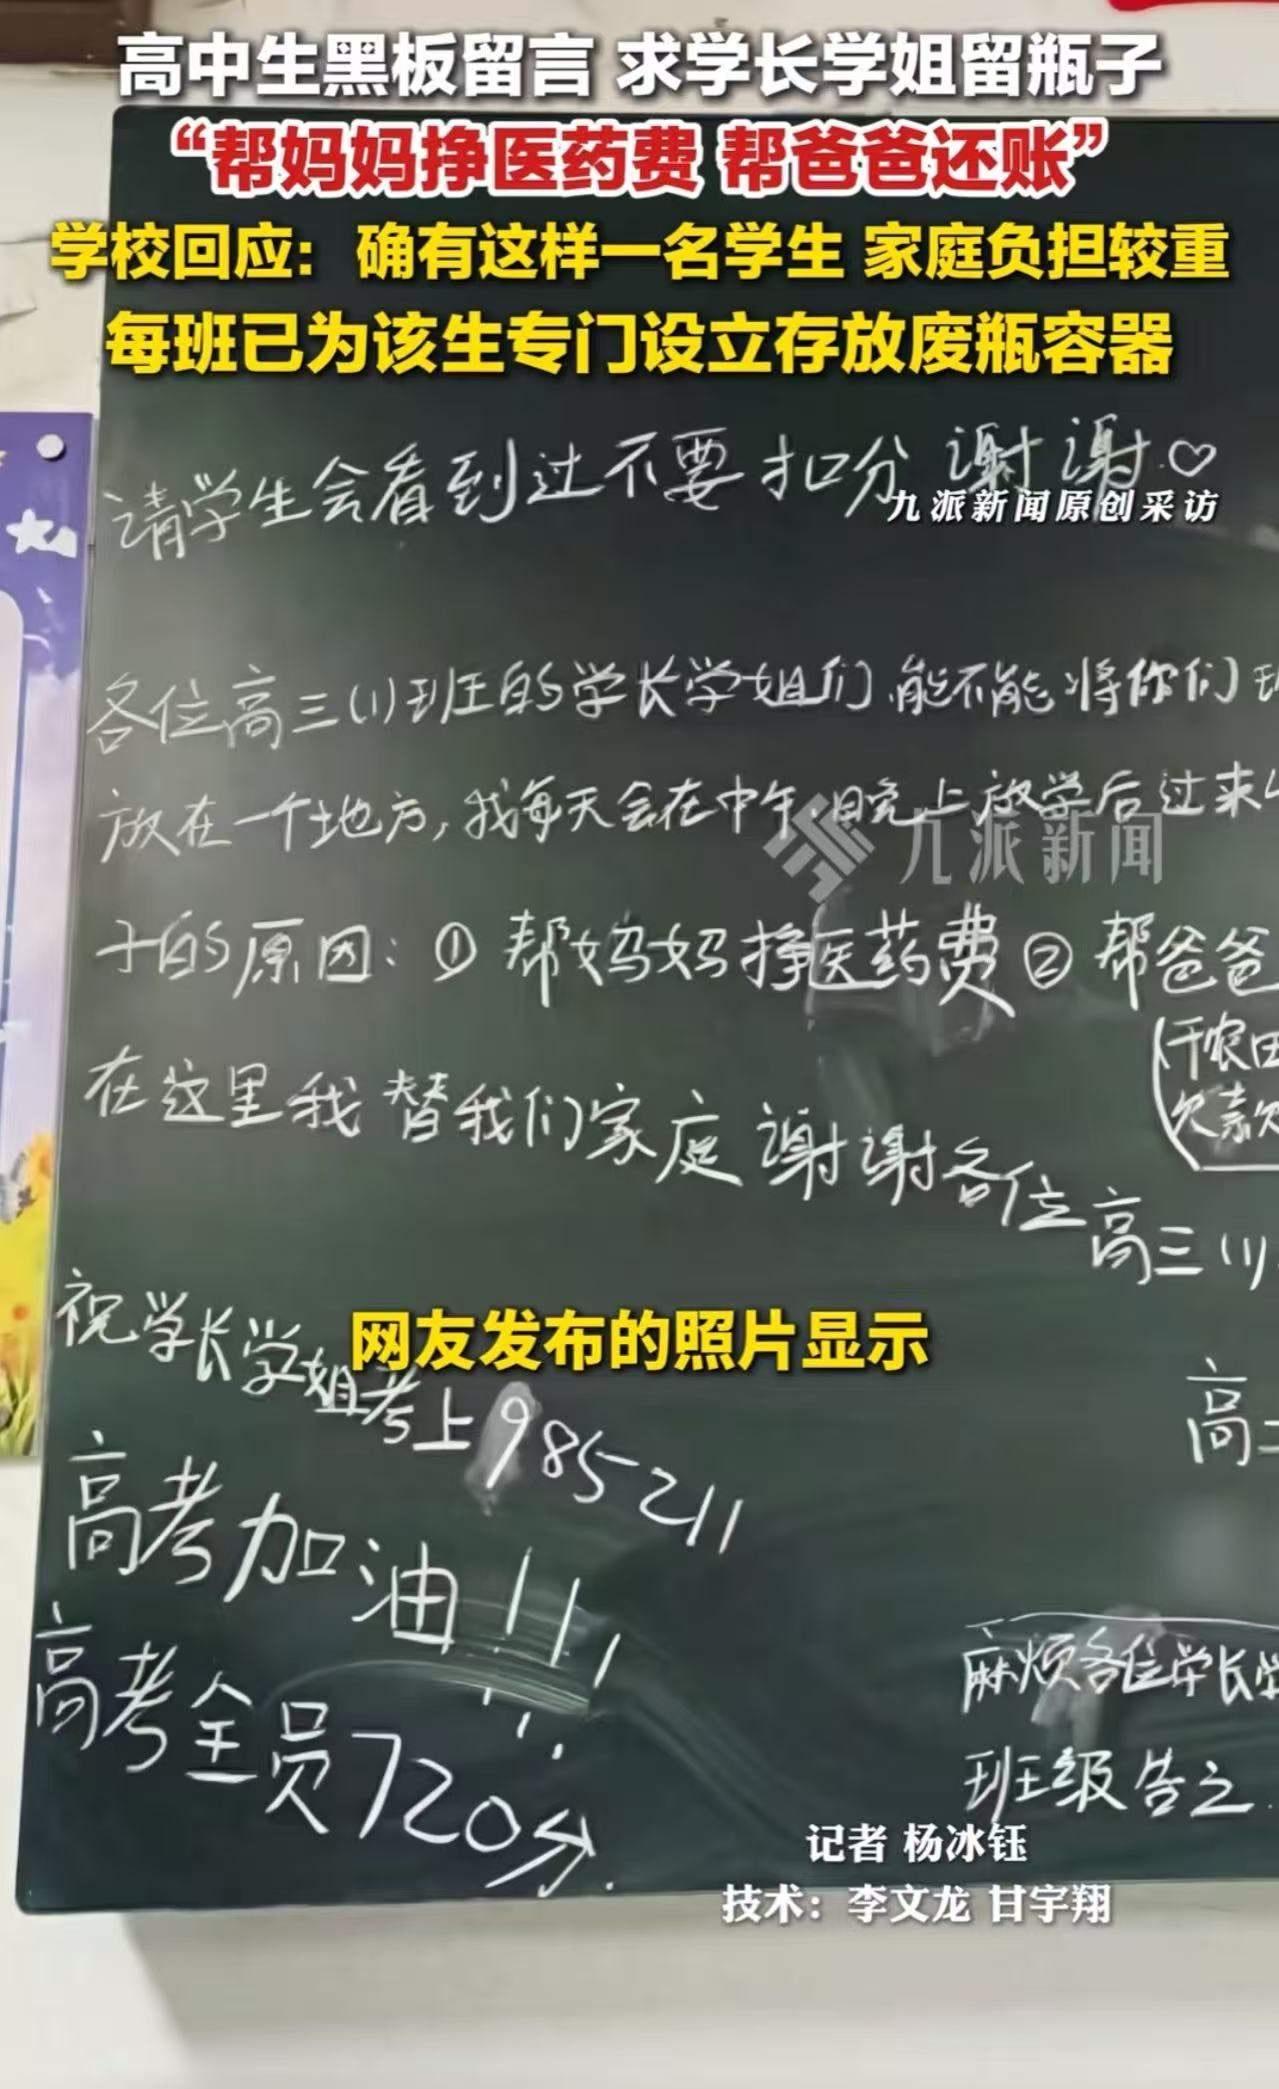 高中生黑板留言 求学长学姐留瓶子
“帮妈妈挣医药费 帮爸爸还账”
学校回应：确有这样一名学生 家庭负担较重
每班已为该生专门设立存放废瓶容器
请学生会看到过不要扣分 谢谢.♡
九派新闻原创采访
各位高三(1)班的学长学姐们,能不能将你们
放在一个地方,我每天会在中午.晚上放学后过来
九派新闻
子的原因: ① 帮妈妈挣医药费 ② 帮爸爸
(干农田
欠款
在这里我替我们家庭谢谢各位高三(1)
网友发布的照片显示
祝学长学姐考上985 211
高考加油!!!
高考全员720分.
高二
麻烦各位学长
班级告之.
记者 杨冰钰
技术：李文龙 甘宇翔